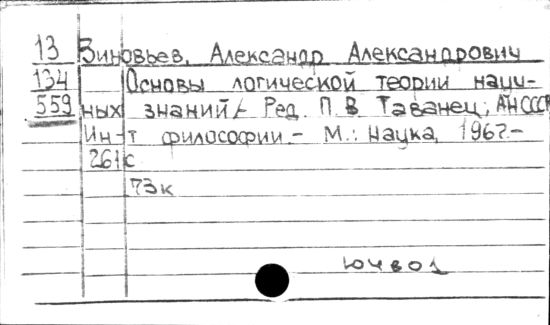 13 Зиновьев, Александр Александрович
134 Основы логической теории науч-
559 ных знаний / Ред. П. В. Таванец; АН СССР
Ин-т философии.- М.: Наука, 1967.-
261 с
73к
ючво1